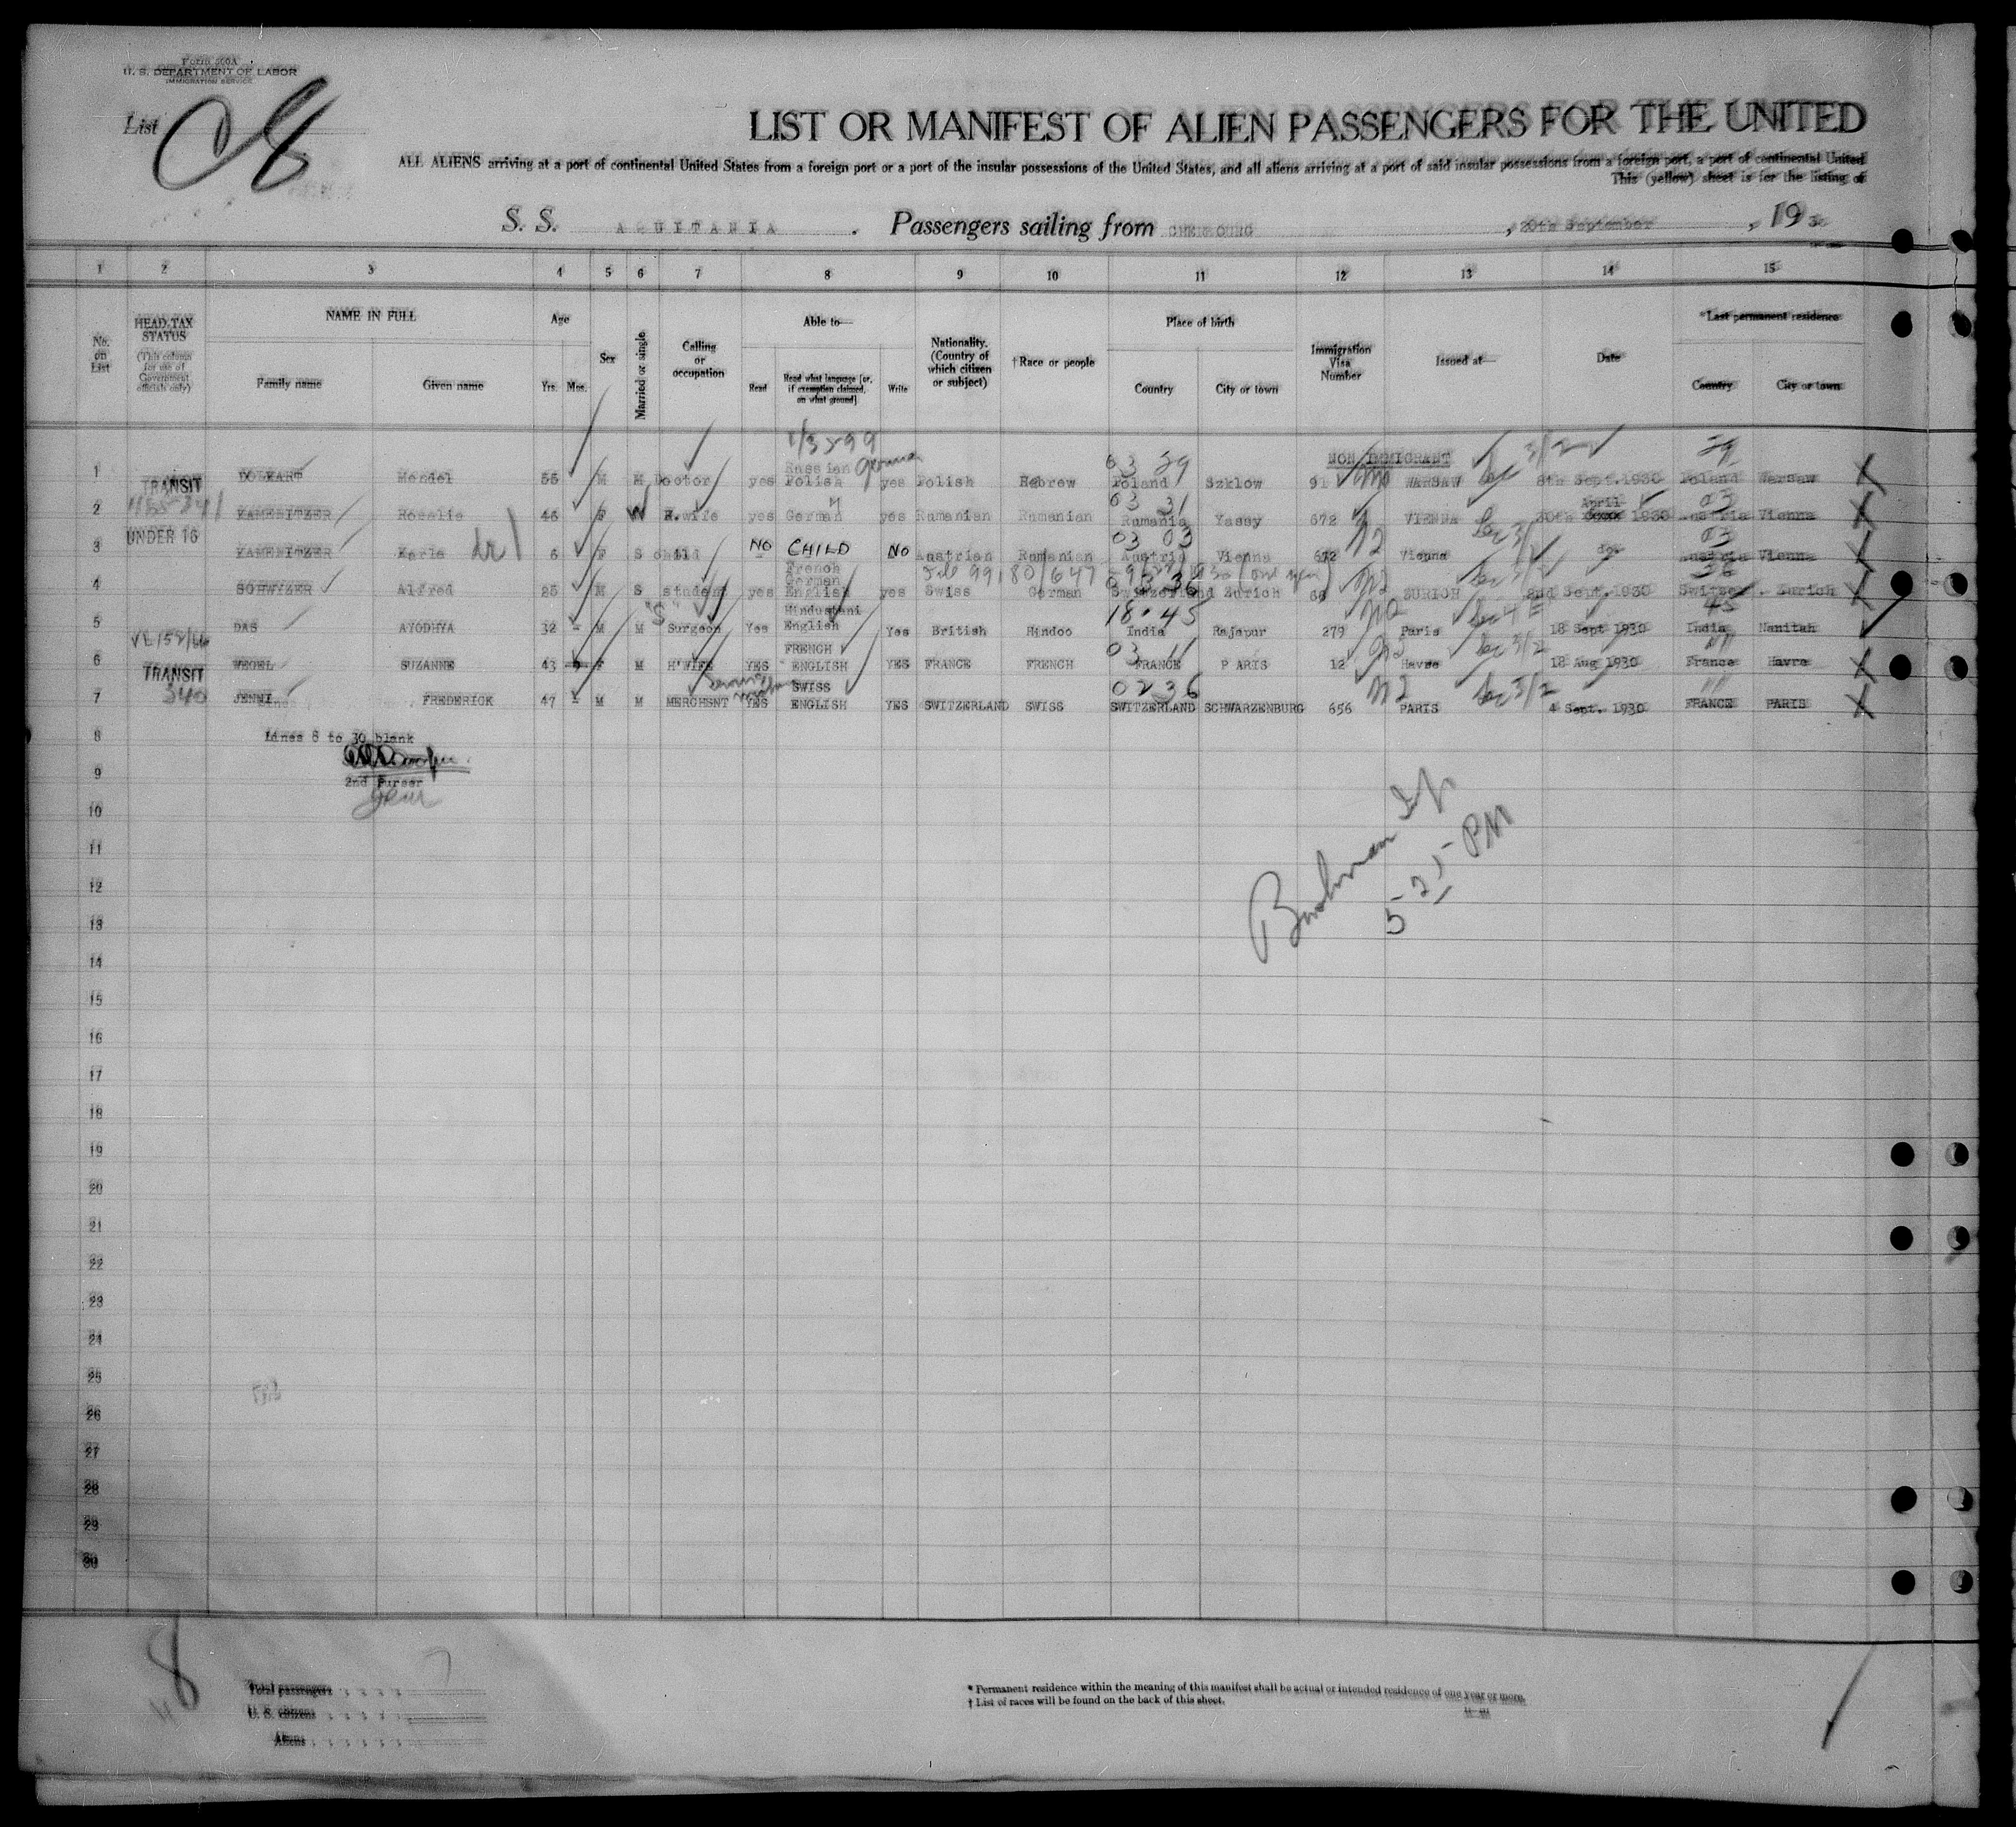 Form 500A
U. S. DEPARTMENT OF LABOR
IMMIGRATION SERVICE
List 8
LIST OR MANIFEST OF ALIEN PASSENGERS FOR THE UNITED
ALL ALIENS arriving at a port of continental United States from a foreign port or a port of the insular possessions of the United States, and all aliens arriving at a port of said insular possessions from a foreign port, a port of continental United
This (yellow) sheet is for the listing of
S. S. AQUITANIA. Passengers sailing from CHERBOURG, 20th September, 1930
1 2 3 4 5 6 7 8 9 10 11 12 13 14 15
No. on List HEAD-TAX STATUS (This column for use of Government officials only) NAME IN FULL Family name Given name Age Yrs. Mos. Sex Married or single Calling or occupation Able to— Read Read what language [or, if exemption claimed, on what ground] Write Nationality. (Country of which citizen or subject) †Race or people Place of birth Country City or town Immigration Visa Number Issued at— Date *Last permanent residence Country City or town
1/3299
NON IMMIGRANT
1 TRANSIT DOLKART Mendel 55 M M Doctor yes Russian Polish German yes Polish Hebrew Poland Szklow 91 WARSAW 8th Sept.1930 Poland Warsaw
03 29 3/2 29
2 KAMENITZER Rosalie 46 F W H.wife yes German yes Rumanian Rumanian Rumania Yassy 672 VIENNA 30th April 1930 Austria Vienna
03 31 03
3 UNDER 16 KAMENITZER Karla 6 F S child NO CHILD NO Austrian Rumanian Austria Vienna 672 Vienna do- Austria Vienna
03 03 03
4 SCHWYZER Alfred 25 M S student yes French German English yes Swiss German Switzerland Zurich 66 ZURICH 2nd Sept.1930 Switze. Zurich
03 36 36
5 DAS AYODHYA 32 - M M "S" Surgeon Yes Hindustani English Yes British Hindoo India Rajapur 279 Paris 18 Sept 1930 India
18-45 45
6 TRANSIT WEGEL SUZANNE 43 - F M H'WIFE YES FRENCH ENGLISH YES FRANCE FRENCH FRANCE PARIS 12 Havre 18 Aug 1930 France Havre
03 11 11
7 340 JENNI FREDERICK 47 - M M MERCHSNT YES SWISS ENGLISH YES SWITZERLAND SWISS SWITZERLAND SCHWARZENBURG 656 PARIS 4 Sept. 1930 FRANCE PARIS
0236 11
8 Lines 8 to 30 blank
9 2nd Purser
10
11
5 25 PM
12
13
14
15
16
17
18
19
20
21
22
23
24
25
26
27
28
29
30
8
Total passengers . . . . 7
U. S. citizens . . . . .
Aliens . . . . . .
* Permanent residence within the meaning of this manifest shall be actual or intended residence of one year or more.
† List of races will be found on the back of this sheet.